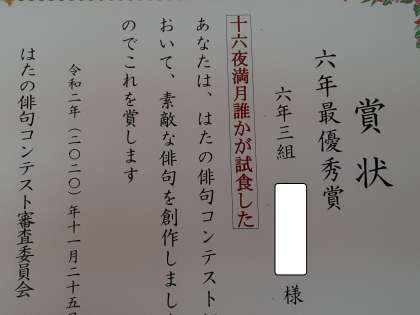 賞状
六年最優秀賞
六年三組
様
十六夜満月誰かが試食した
あなたは、はたの俳句コンテスト
おいて、素敵な俳句を創作しまし
のでこれを賞します
令和二年(二〇二〇)年十一月二十五
はたの俳句コンテスト審査委員会